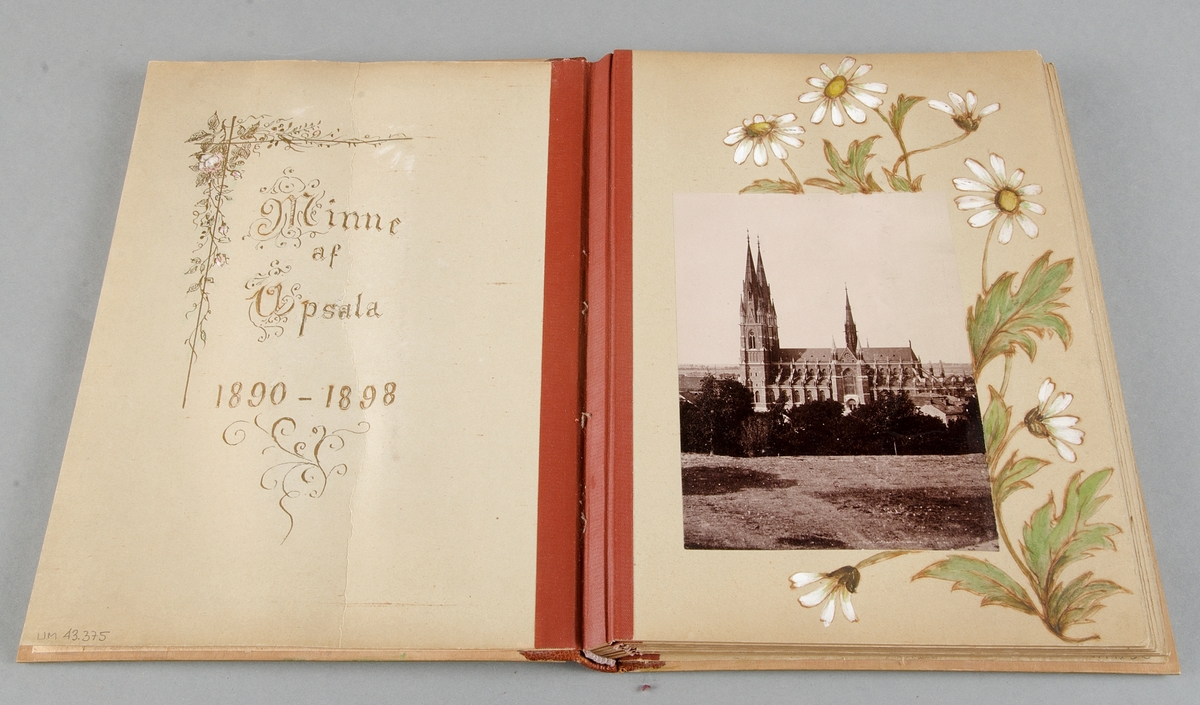 Minne
af
Upsala
1890 - 1898
UM 43.375